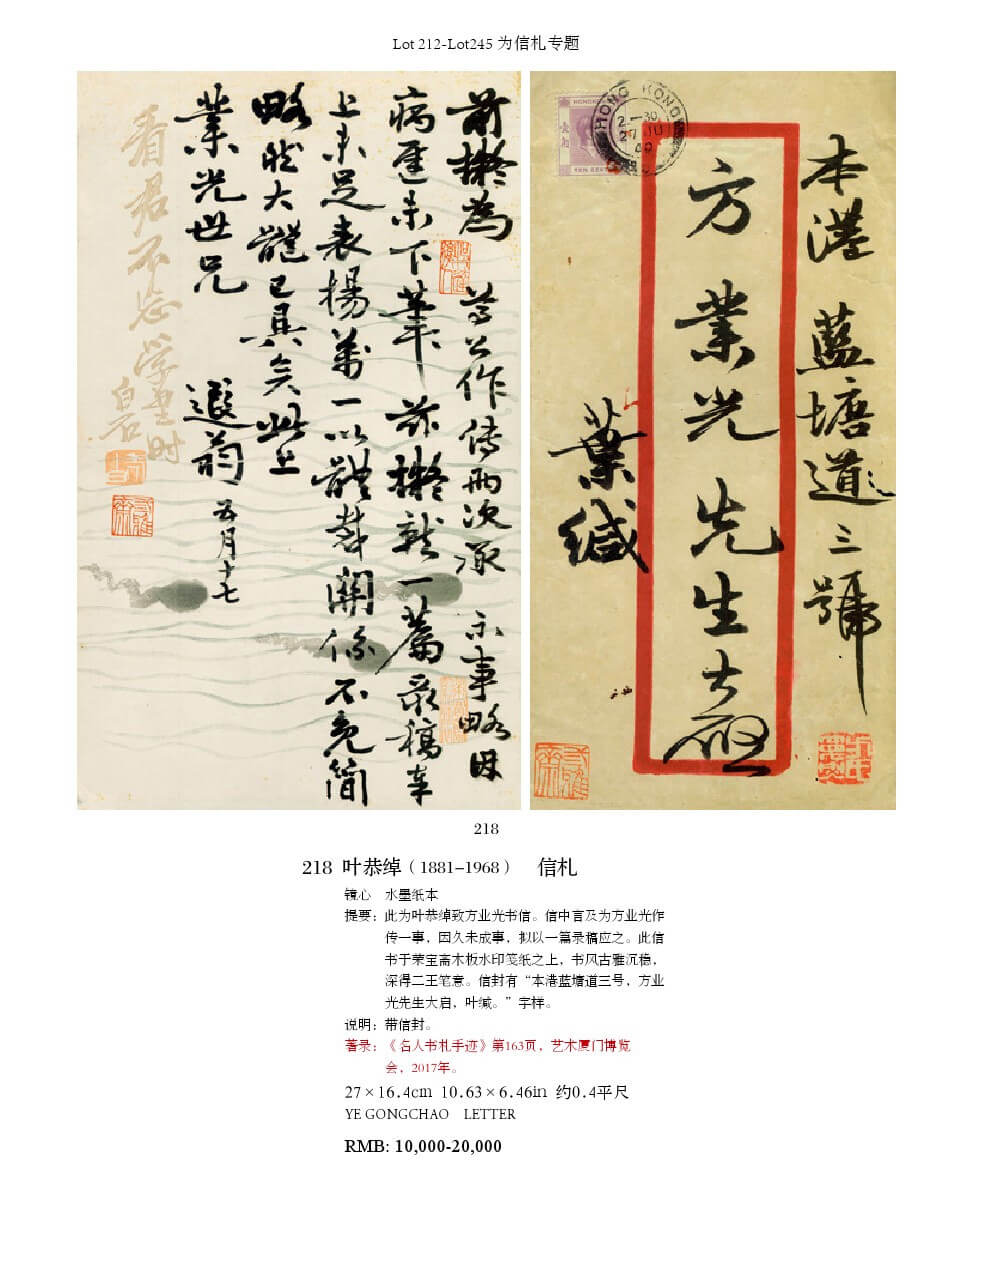 Lot 212-Lot245 为信札专题
前擬為
尊公作传兩次承 示事略因
病遲未下筆 茲擬就一篇录稿奉
上未足表揚萬一以體裁關係不免簡
略然大體已具矣此上
業光世兄
遐翁 五月十七
看君不忘學書时
HONG KONG
本港 藍塘道三號
方業光先生大啟
葉緘
218
218 叶恭绰（1881-1968） 信札
镜心 水墨纸本
提要：此为叶恭绰致方业光书信。信中言及为方业光作
传一事，因久未成事，拟以一篇录稿应之。此信
书于荣宝斋木板水印笺纸之上，书风古雅沉稳，
深得二王笔意。信封有“本港蓝塘道三号，方业
光先生大启，叶缄。”字样。
说明：带信封。
著录：《名人书札手迹》第163页，艺术厦门博览
会，2017年。
27×16.4cm 10.63×6.46in 约0.4平尺
YE GONGCHAO LETTER
RMB: 10,000-20,000